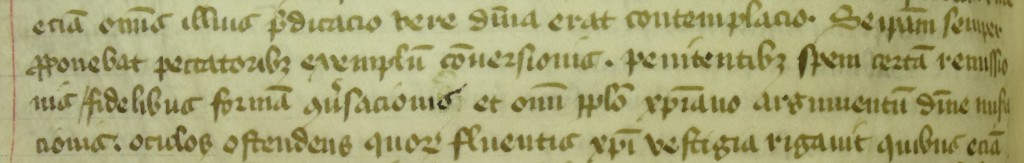 eciā omīs illius p̄dicacio vere diīa erat contemplacio. Se ipām semper
p̄ponebat peccatoribꝫ exemplū cōuersionis. penitentibꝫ spem certā remissio
nis fidelibus formā ꝯv̄sacionis et omī pplō xp̄iano argumentū dīne
cionis. oculos ostendens quoꝝ fluentis xp̄i vestigia rigauit quibus eciā